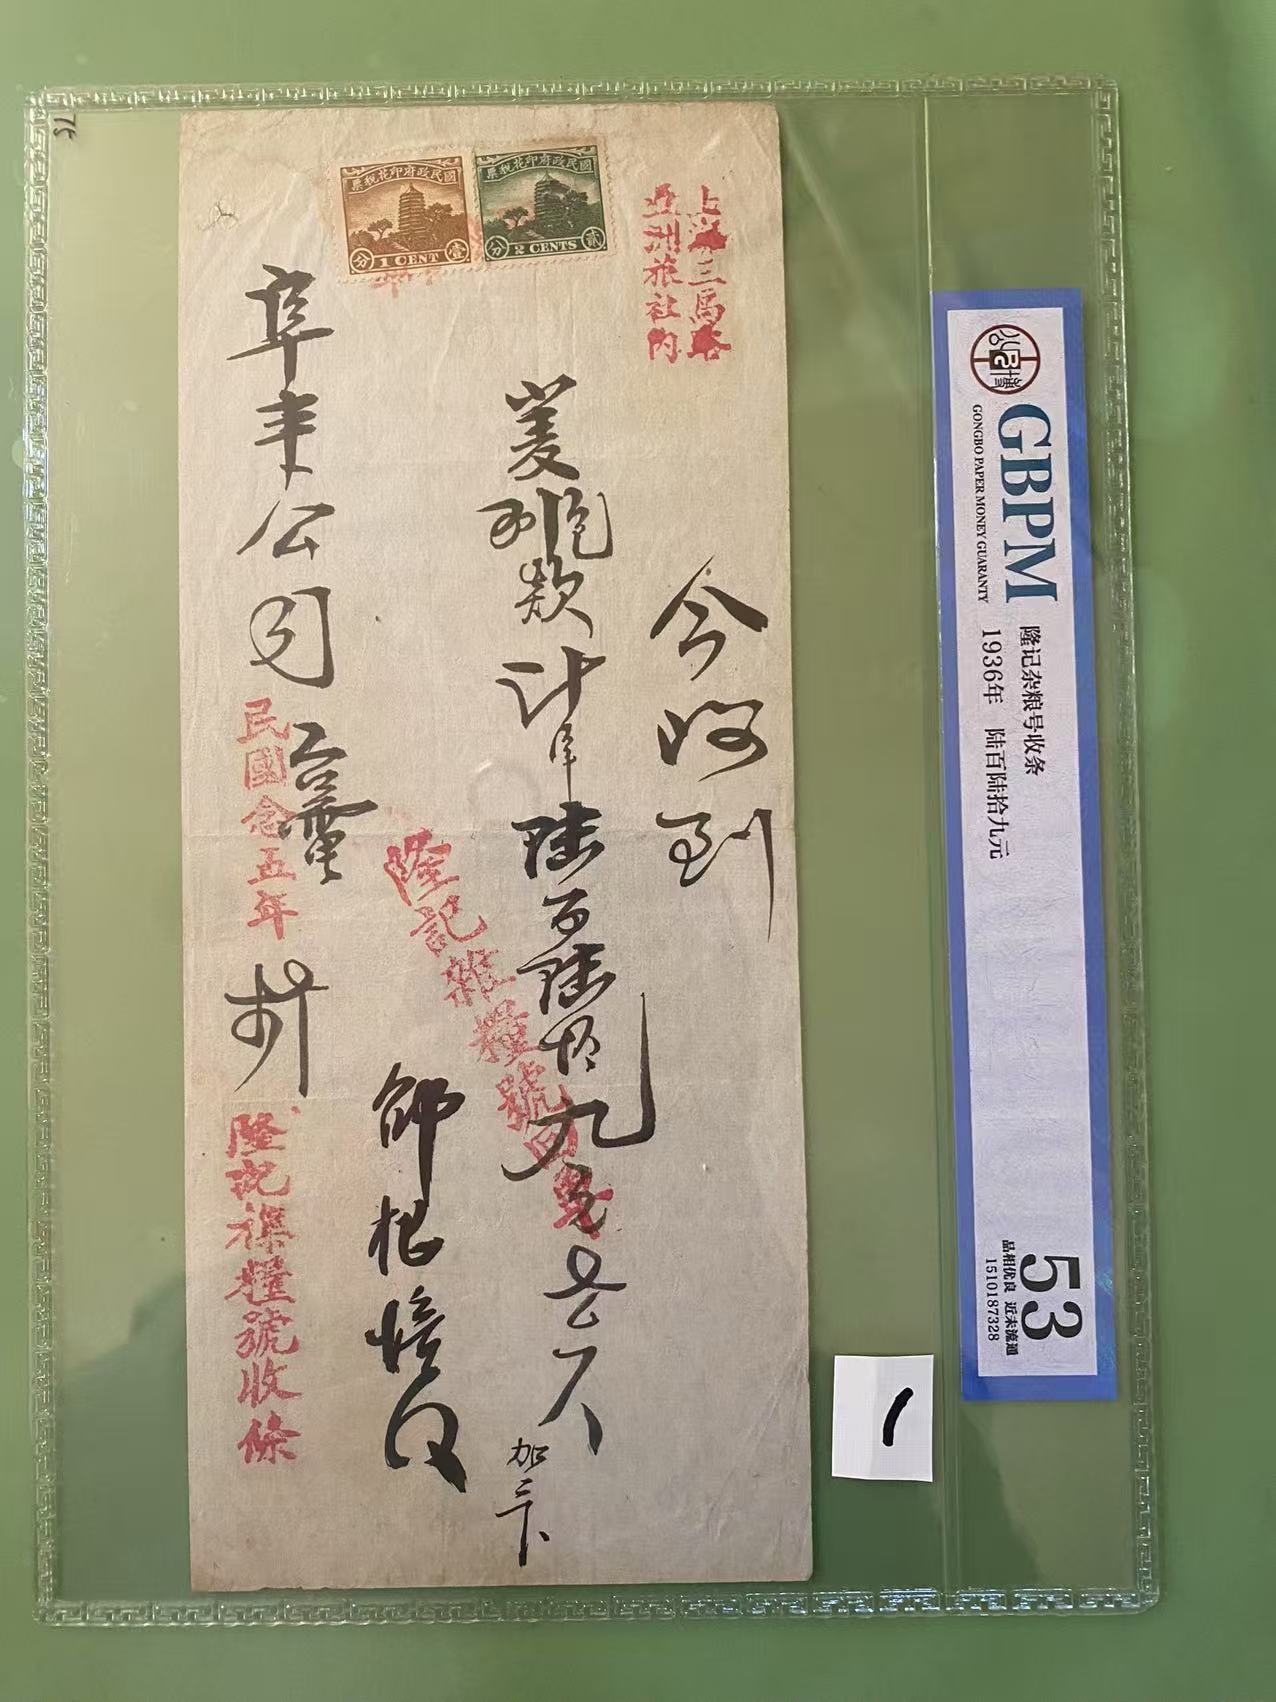 上海三馬路
亞洲旅社內
今收到
麦
款計洋陸百陸拾九元
加三下
隆記雜糧號
邵根
阜丰公司台
民國念五年
隆記雜糧號收條
國民政府印花稅票
分 1 CENT 壹
國民政府印花稅票
分 2 CENTS 貳
GBPM
GONGBO PAPER MONEY GUARANTY
隆记杂粮号收条
1936年 陆百陆拾九元
53
品相优良 近未流通
1510187328
一
75